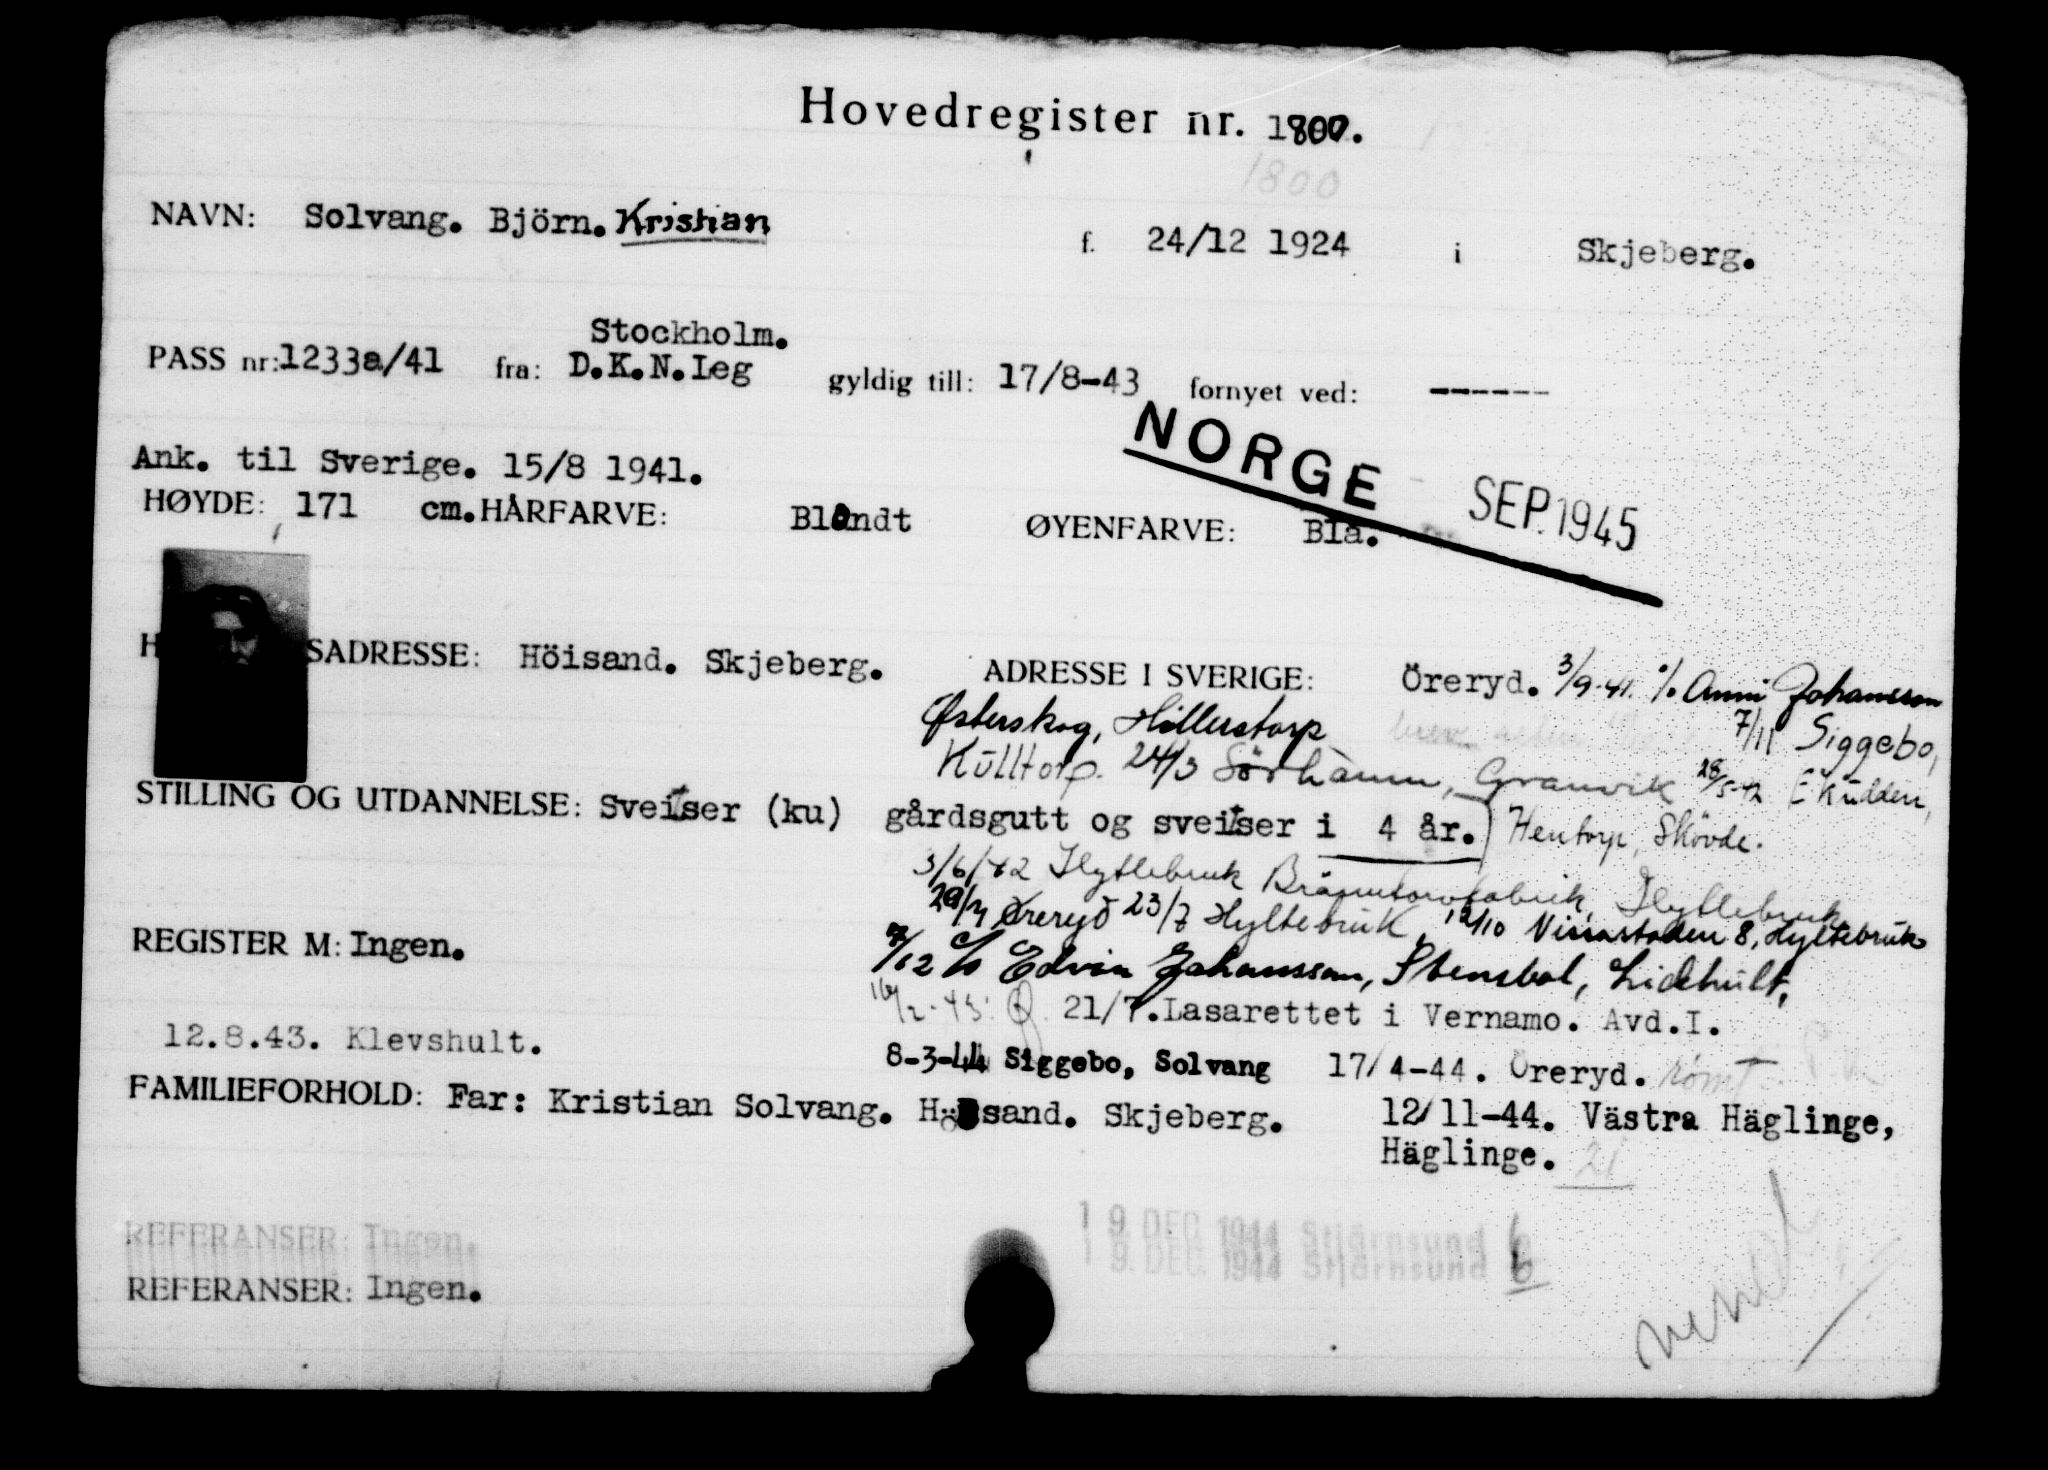 Hovedregister nr. 1800.
1800
NAVN: Solvang. Björn. Kristian f. 24/12 1924 i Skjeberg.
Stockholm.
PASS nr: 1233a/41 fra: D.K.N.Leg gyldig till: 17/8-43 fornyet ved: ------
NORGE SEP. 1945
Ank. til Sverige. 15/8 1941.
HØYDE: 171 cm. HÅRFARVE: Blondt ØYENFARVE: Blå.
H SADRESSE: Höisand. Skjeberg. ADRESSE I SVERIGE: Öreryd. 3/9-41. c/o Anni Johansson
Østerskog, Hillerstorp 7/11 Siggebo,
Kulltorp. 24/3 Sörhamn, Granvik 28/5-42 Ekudden,
STILLING OG UTDANNELSE: Sveitser (ku) gårdsgutt og sveitser i 4 år. Hentorp, Skövde.
3/6/42 Hyltebruk Bränntorvfabrik, Hyltebruk
Øreryd 23/7 Hyltebruk, 12/10 Nissastaden 8, Hyltebruk
REGISTER M: Ingen.
7/12 c/o Edvin Johansson, Stensbol, Lidhult,
16/2-43: 21/7. Lasarettet i Vernamo. Avd.I.
12.8.43. Klevshult.
8-3-44 Siggebo, Solvang 17/4-44. Öreryd. rømt
FAMILIEFORHOLD: Far: Kristian Solvang. Höisand. Skjeberg. 12/11-44. Västra Häglinge,
Häglinge. 21
REFERANSER: Ingen.
19 DEC. 1944 Stjärnsund 6
19. DEC. 1944 Stjärnsund 6
REFERANSER: Ingen.
vendt